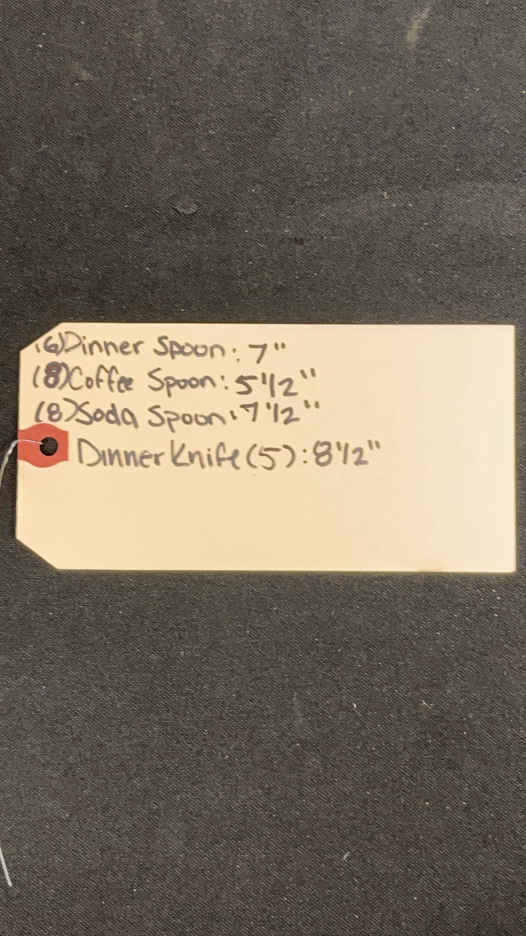 (6)Dinner Spoon: 7"
(8)Coffee Spoon: 5 1/2"
(8)Soda Spoon: 7 1/2"
Dinner Knife (5): 8 1/2"